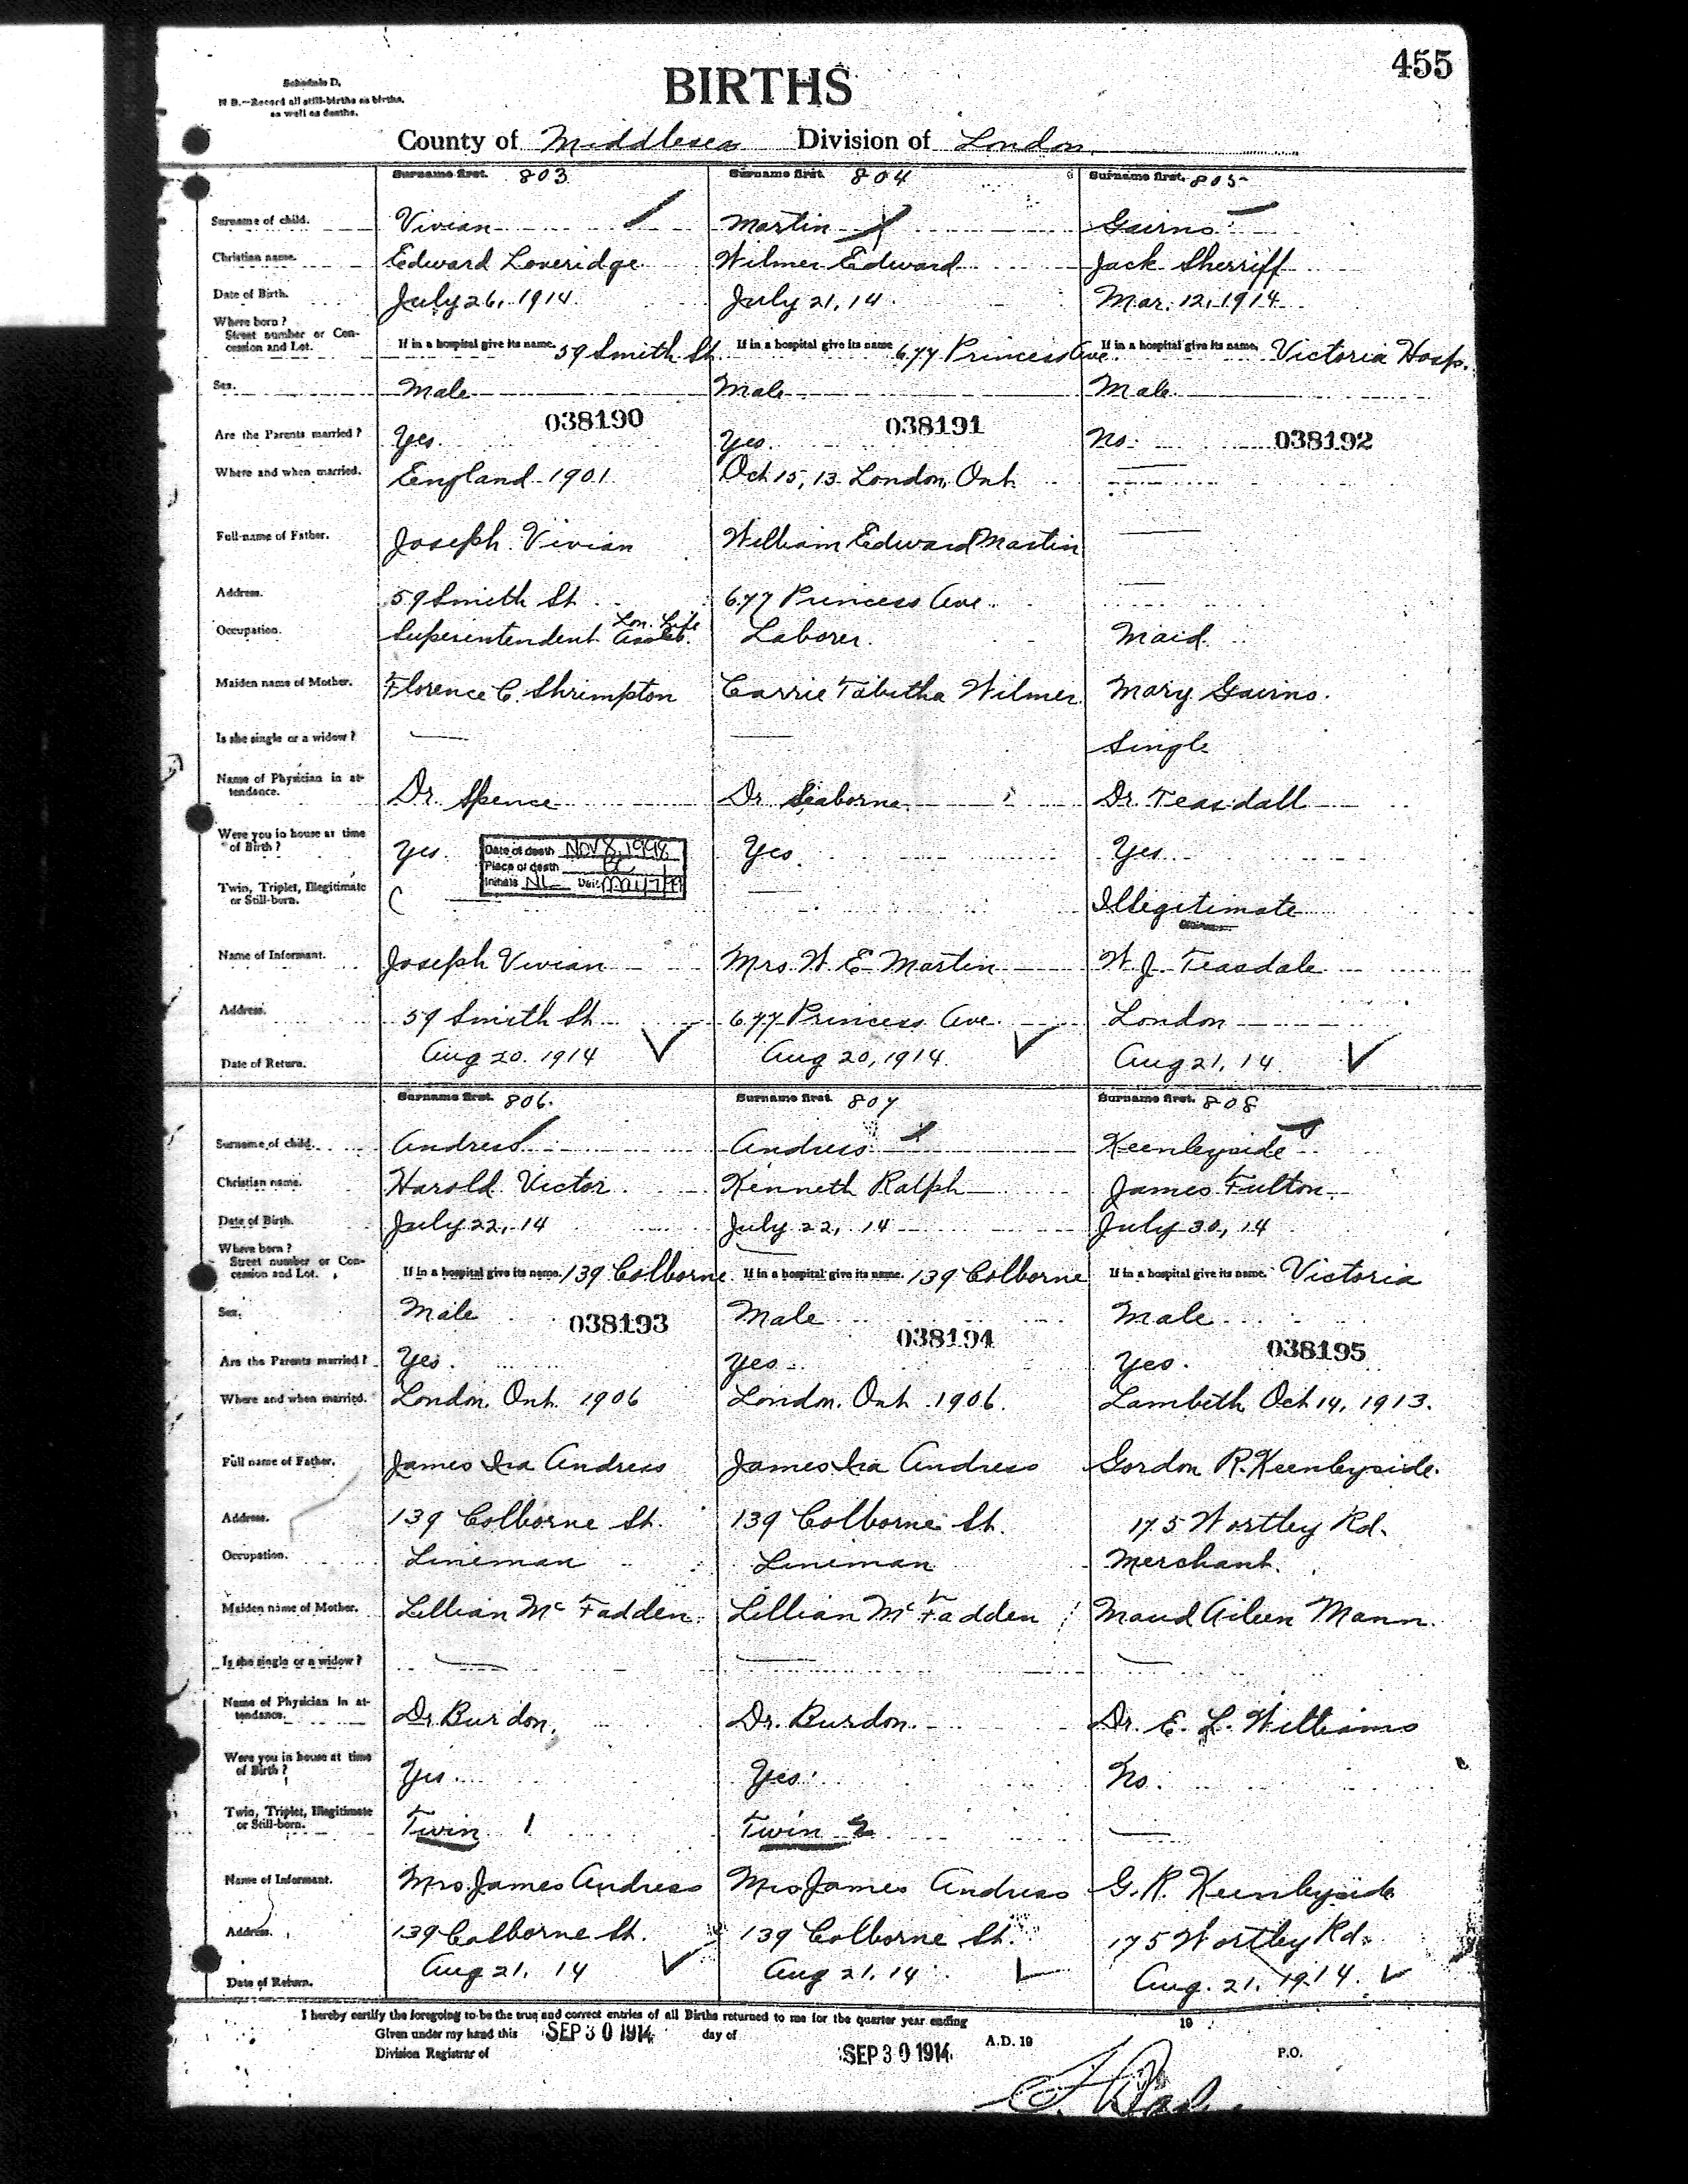 455
Schedule D.
N B.—Record all still-births as births, as well as deaths.
BIRTHS
County of Middlesex Division of London
Surname first. 803 Surname first. 804 Surname first. 805
Surname of child. Vivian Martin Gairns
Christian name. Edward Loveridge Wilmer Edward Jack Sherriff
Date of Birth. July 26, 1914 July 21, 14 Mar. 12, 1914
Where born? Street number or Concession and Lot. If in a hospital give its name. 59 Smith St If in a hospital give its name 677 Princess Ave If in a hospital give its name. Victoria Hosp.
Sex. Male Male Male
038190 038191 038192
Are the Parents married? Yes. Yes No.
Where and when married. England 1901 Oct 15, 13 London, Ont. —
Full name of Father. Joseph Vivian William Edward Martin —
Address. 59 Smith St 677 Princess Ave. —
Occupation. Superintendent Lon. Life Laborer. Maid
Maiden name of Mother. Florence C. Shrimpton Carrie Tabitha Wilmer Mary Gairns.
Is she single or a widow? — — Single
Name of Physician in attendance. Dr. Spence Dr Seaborne Dr. Teasdall
Were you in house at time of Birth? Yes. Yes. Yes
Date of death NOV 8, 1998
Place of death BC
Initials NL Date May 7/99
Twin, Triplet, Illegitimate or Still-born. — Illegitimate
Name of Informant. Joseph Vivian Mrs. W. E. Martin W. J. Teasdale
Address. 59 Smith St. 677 Princess Ave. London
Date of Return. Aug 20. 1914 Aug 20, 1914 Aug 21, 14
Surname first. 806. Surname first. 807 Surname first. 808
Surname of child. Andress Andress Keenleyside
Christian name. Harold Victor Kenneth Ralph James Fulton
Date of Birth. July 22, 14 July 22, 14 July 30, 14
Where born? Street number or Concession and Lot. If in a hospital give its name. 139 Colborne If in a hospital give its name. 139 Colborne If in a hospital give its name. Victoria
Sex. Male Male Male
038193 038194 038195
Are the Parents married? Yes. Yes Yes.
Where and when married. London, Ont. 1906 London. Ont 1906. Lambeth Oct 14, 1913.
Full name of Father. James Ira Andress James Ira Andress Gordon R. Keenleyside.
Address. 139 Colborne St. 139 Colborne St. 175 Wortley Rd.
Occupation. Lineman Lineman Merchant.
Maiden name of Mother. Lillian McFadden Lillian McFadden Maud Aileen Mann.
Is she single or a widow? — — —
Name of Physician in attendance. Dr. Burdon. Dr. Burdon. Dr. E. L. Williams
Were you in house at time of Birth? Yes. Yes. No.
Twin, Triplet, Illegitimate or Still-born. Twin 1 Twin 2 —
Name of Informant. Mrs. James Andress Mrs James Andress G. R. Keenleyside
Address. 139 Colborne St. 139 Colborne St. 175 Wortley Rd.
Date of Return. Aug 21, 14 Aug 21, 14 Aug. 21, 1914.
I hereby certify the foregoing to be the true and correct entries of all Births returned to me for the quarter year ending 19
Given under my hand this SEP 30 1914 day of SEP 30 1914 A.D. 19
Division Registrar of P.O.